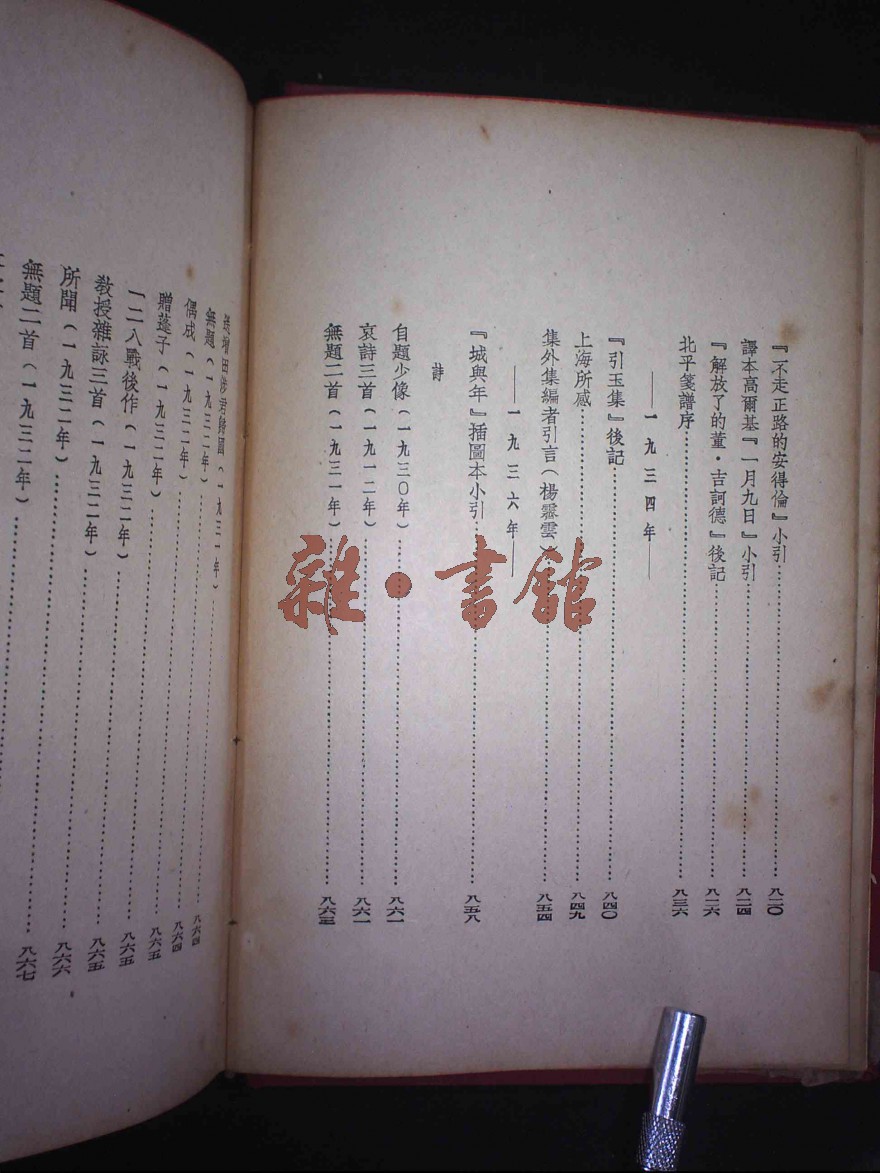 『不走正路的安得倫』小引…………八二〇
譯本高爾基『一月九日』小引…………八二四
『解放了的董·吉訶德』後記…………八二六
北平箋譜序…………八三六
——一九三四年——
『引玉集』後記…………八四〇
上海所感…………八四九
集外集編者引言(楊霽雲)…………八五四
——一九三六年——
『城與年』插圖本小引…………八五八
詩
自題少像(一九三〇年)…………八六一
哀詩三首(一九一二年)…………八六一
無題二首(一九三一年)…………八六三
送增田涉君歸國(一九三一年)…………八六四
無題(一九三二年)…………八六四
偶成(一九三二年)…………八六四
贈蓬子(一九三二年)…………八六五
一二八戰後作(一九三二年)…………八六五
教授雜詠三首(一九三二年)…………八六五
所聞(一九三二年)…………八六六
無題二首(一九三二年)…………八六七
雜·書館